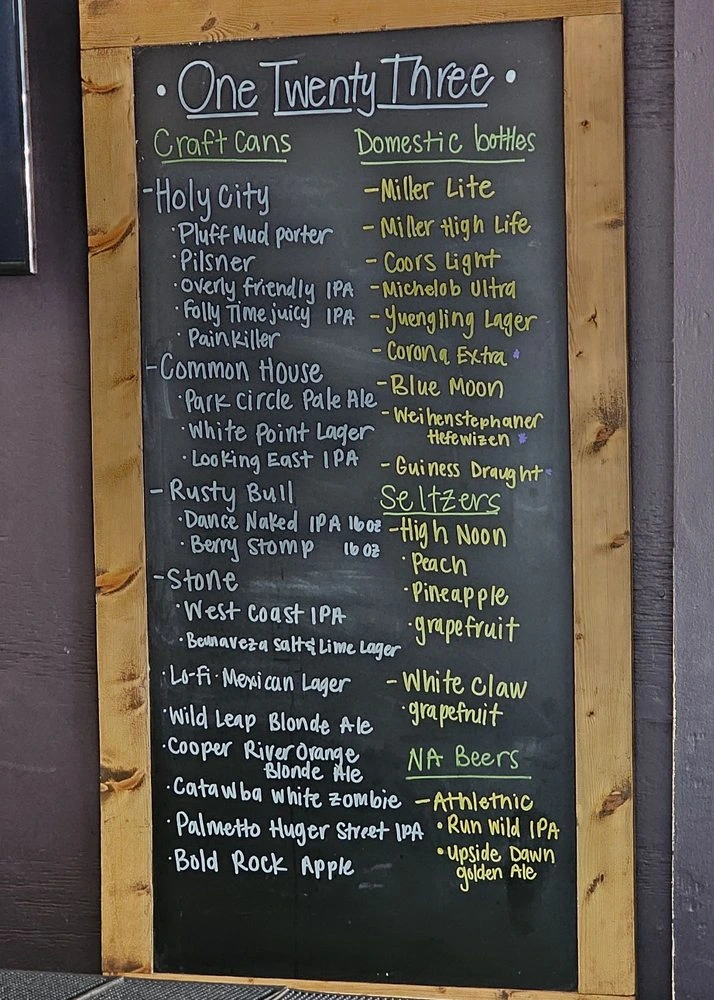 • One Twenty Three •
Craft Cans
-Holy City
·Pluff Mud porter
·Pilsner
·Overly friendly IPA
·Folly Time juicy IPA
·Painkiller
-Common House
·Park Circle Pale Ale
·White Point Lager
·Looking East IPA
-Rusty Bull
·Dance Naked IPA 16oz
·Berry Stomp 16oz
-Stone
·West Coast IPA
·Beunaveza Salt & Lime Lager
·Lo-Fi Mexican Lager
·Wild Leap Blonde Ale
·Cooper River Orange
Blonde Ale
·Catawba White Zombie
·Palmetto Huger Street IPA
·Bold Rock Apple
Domestic bottles
-Miller Lite
-Miller High Life
-Coors Light
-Michelob Ultra
-Yuengling Lager
-Corona Extra *
-Blue Moon
-Weihenstephaner
Hefewizen *
-Guiness Draught *
Seltzers
-High Noon
·Peach
·Pineapple
·grapefruit
-White Claw
·grapefruit
NA Beers
-Athletnic
•Run Wild IPA
•Upside Dawn
golden Ale